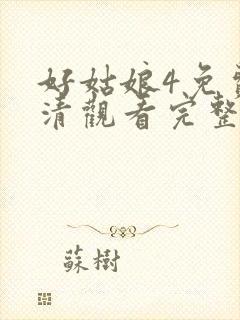 好姑娘4免費
清觀看完整
蘇樹